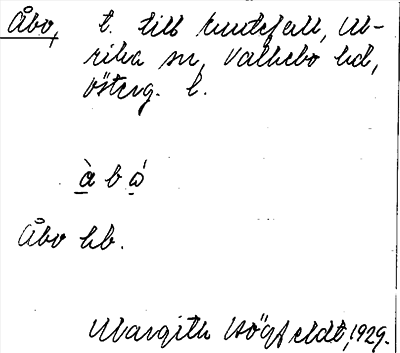 Åbo, t. till Rudefall, Ul-
rika sn, Valkebo hd,
Österg. l.
à b ó
Åbo hb.
Margith Högfeldt, 1929.